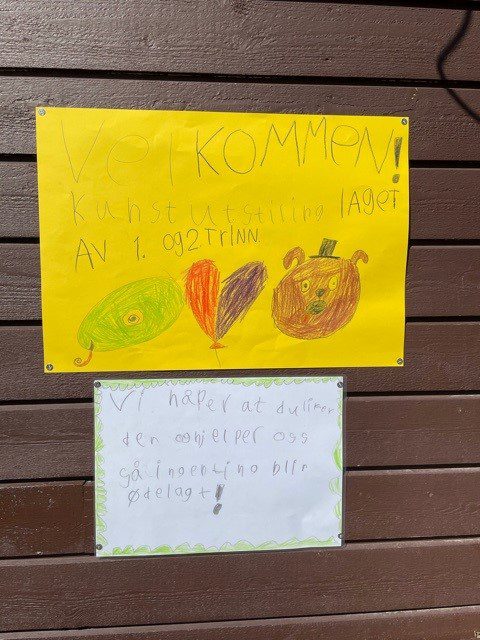 VelKOMMEN!
Kunstutstiring lAGET
AV 1. og2TrINN.
Vi håper at duliker
den oghjelper oss
såingenting blir
ødelagt!